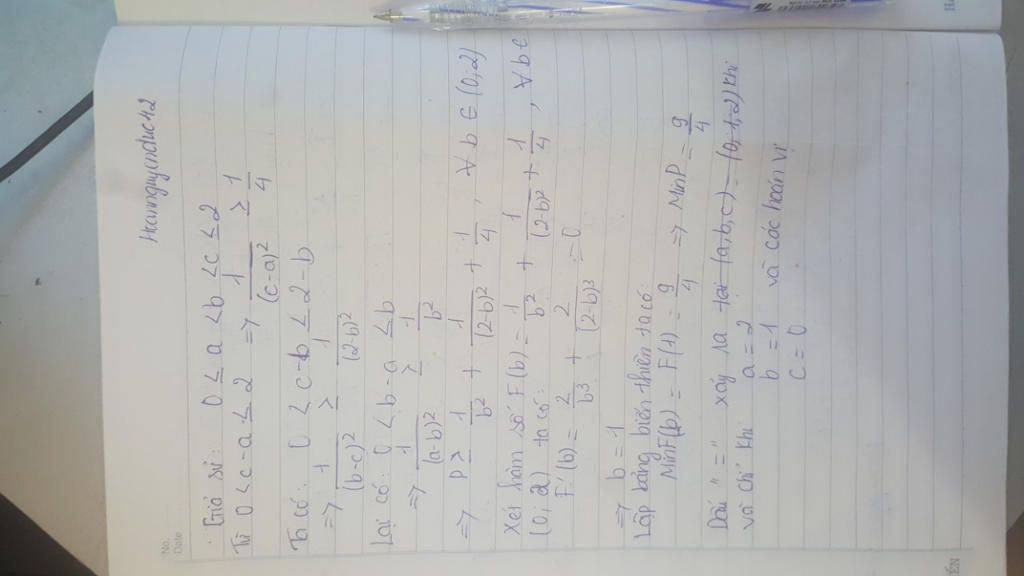 Hoannguyenduc112
No.
Date
. Giả sử: 0 ≤ a < b < c ≤ 2
Thì 0 < c-a ≤ 2 => 1/(c-a)² ≥ 1/4
Ta có: 0 < c-b ≤ 2-b
=> 1/(b-c)² ≥ 1/(2-b)²
Lại có: 0 < b-a ≤ b
=> 1/(a-b)² ≥ 1/b²
=> P ≥ 1/b² + 1/(2-b)² + 1/4, ∀ b ∈ (0,2)
Xét hàm số F(b) = 1/b² + 1/(2-b)² + 1/4, ∀ b ∈
(0;2) ta có:
F'(b) = 2/b³ + 2/(2-b)³ = 0
=> b = 1
Lập bảng biến thiên ta có:
MinF(b) = F(1) = 9/4 => MinP = 9/4
Dấu "=" xảy ra tại (a,b,c) = (0,1,2) khi
và chỉ khi a = 2
b = 1 và các hoán vị
c = 0